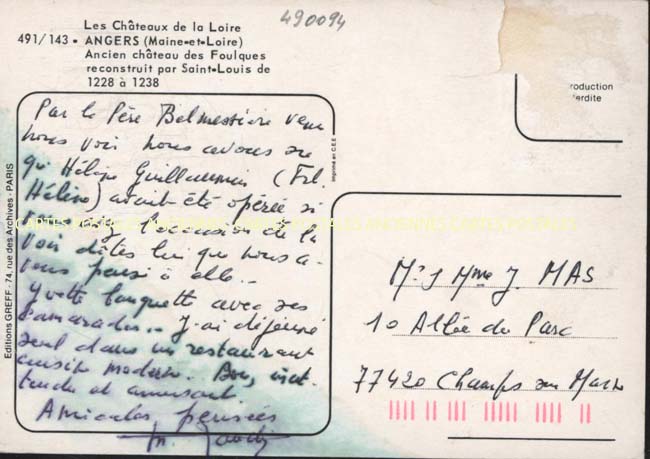 490094
Les Châteaux de la Loire
491/143 - ANGERS (Maine-et-Loire)
Ancien château des Foulques
reconstruit par Saint-Louis de
1228 à 1238
roduction
terdite
Imprimé en C.E.E.
Editions GREFF - 74, rue des Archives - PARIS
Par le Père Belmessière venu
nous voir nous avons su
qu'Hélène Guillaumin (
Hélène) avait été opérée si
vous avez l'occasion de la
voir dîtes lui que nous a-
vons pensé à elle..
Yvette banquette avec ses
camarades.. J'ai déjeuné
seul dans un restaurant
cuisine moderne. Bon, inat-
tendu et amusant.
Amicales pensées
Mr & Mme J. MAS
10 Allée du Parc
77420 Champs sur Marne